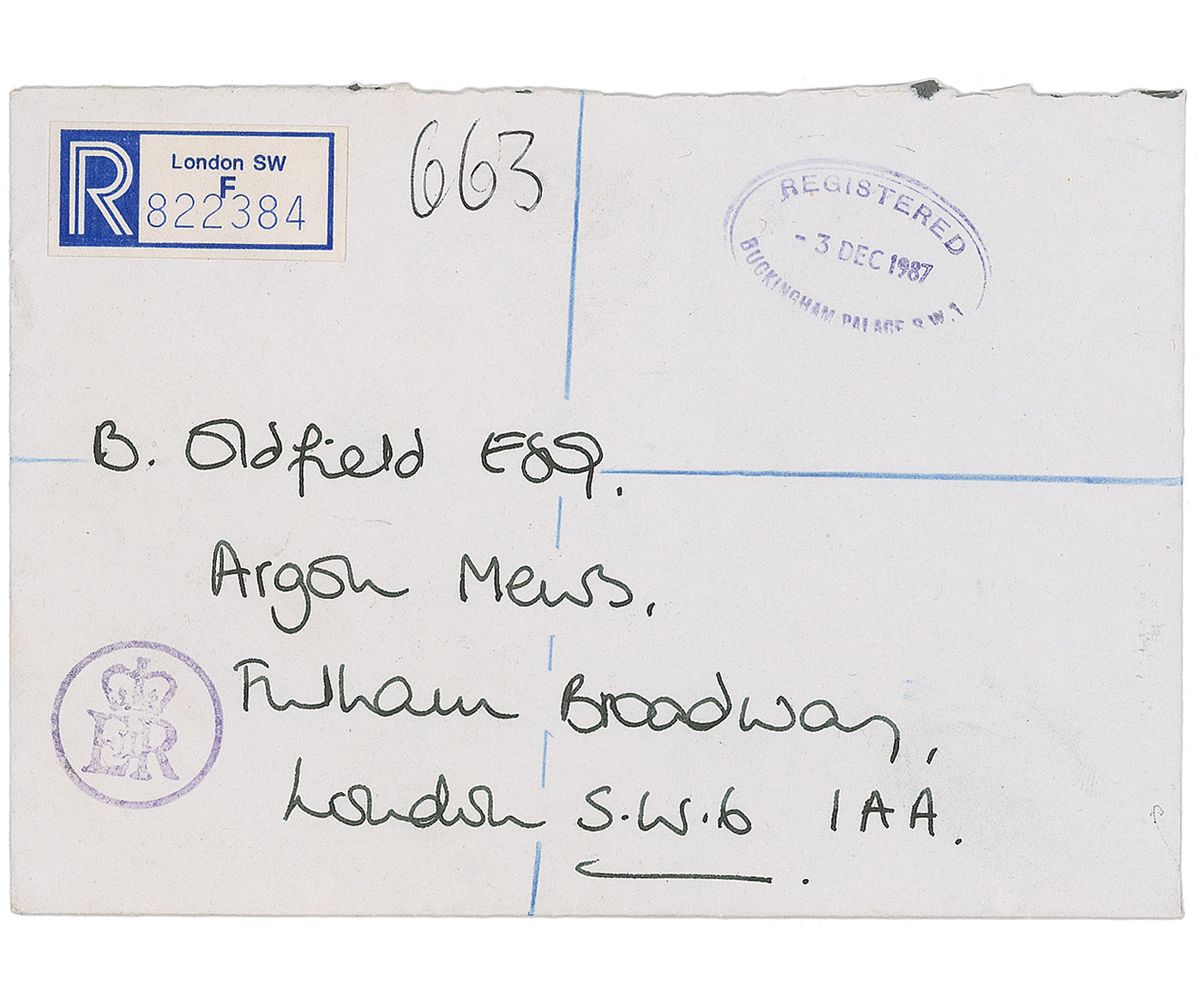 R
London SW
F
822384
663
REGISTERED
- 3 DEC 1987
BUCKINGHAM PALACE S.W.1
B. Oldfield Esq.
Argon Mews,
Fulham Broadway,
London S.W.6 1AA.
E II R